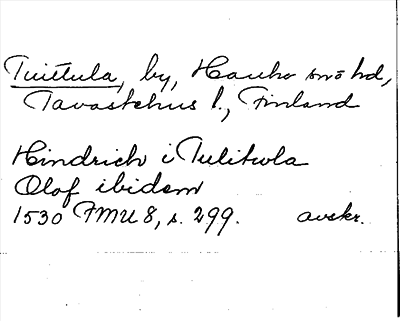 Tuittula, by, Hauho snö hd,
Tavastehus l., Finland
Hindrich i Tulitwla
Olof ibidem
1530 FMU 8, s. 299. avskr.